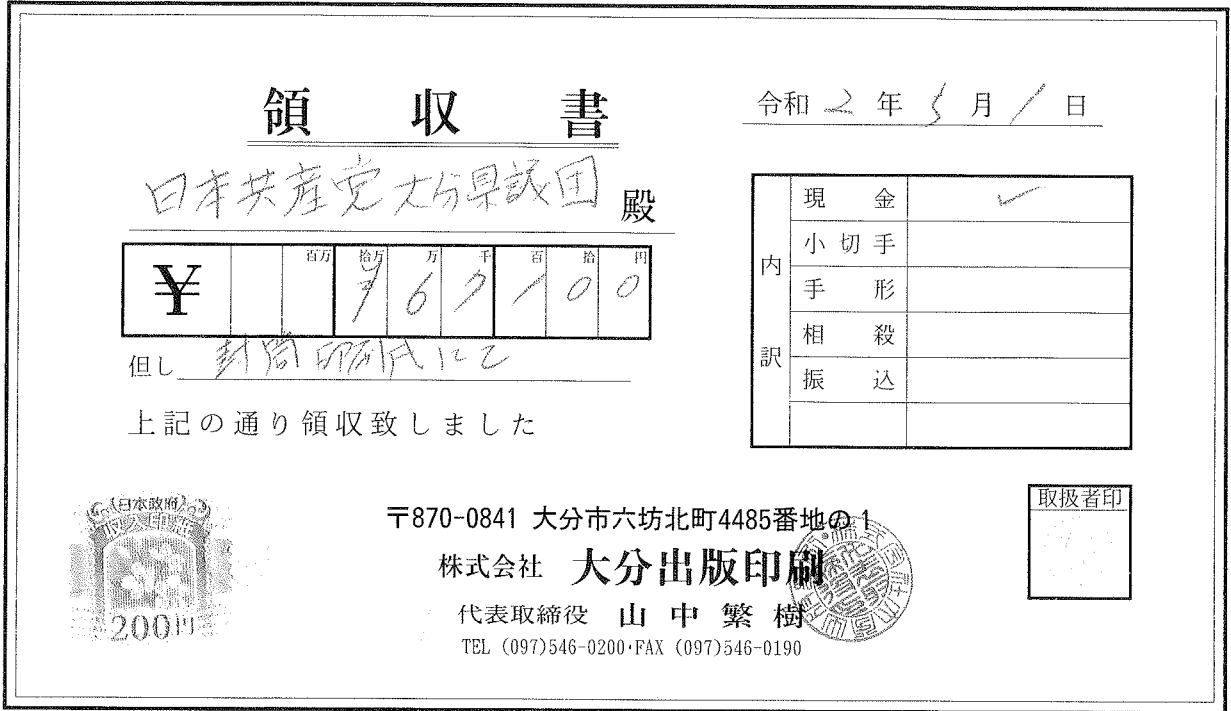 領収書
令和 2 年 5 月 1 日
日本共産党大分県議団 殿
¥ 百万 拾万 万 千 百 拾 円
6 7 1 0 0
但し 封筒印刷代にて
上記の通り領収致しました
内訳
現金 ✓
小切手
手形
相殺
振込
日本政府
収入印紙
200円
〒870-0841 大分市六坊北町4485番地の1
株式会社 大分出版印刷
代表取締役 山中繁樹
TEL (097)546-0200・FAX (097)546-0190
取扱者印